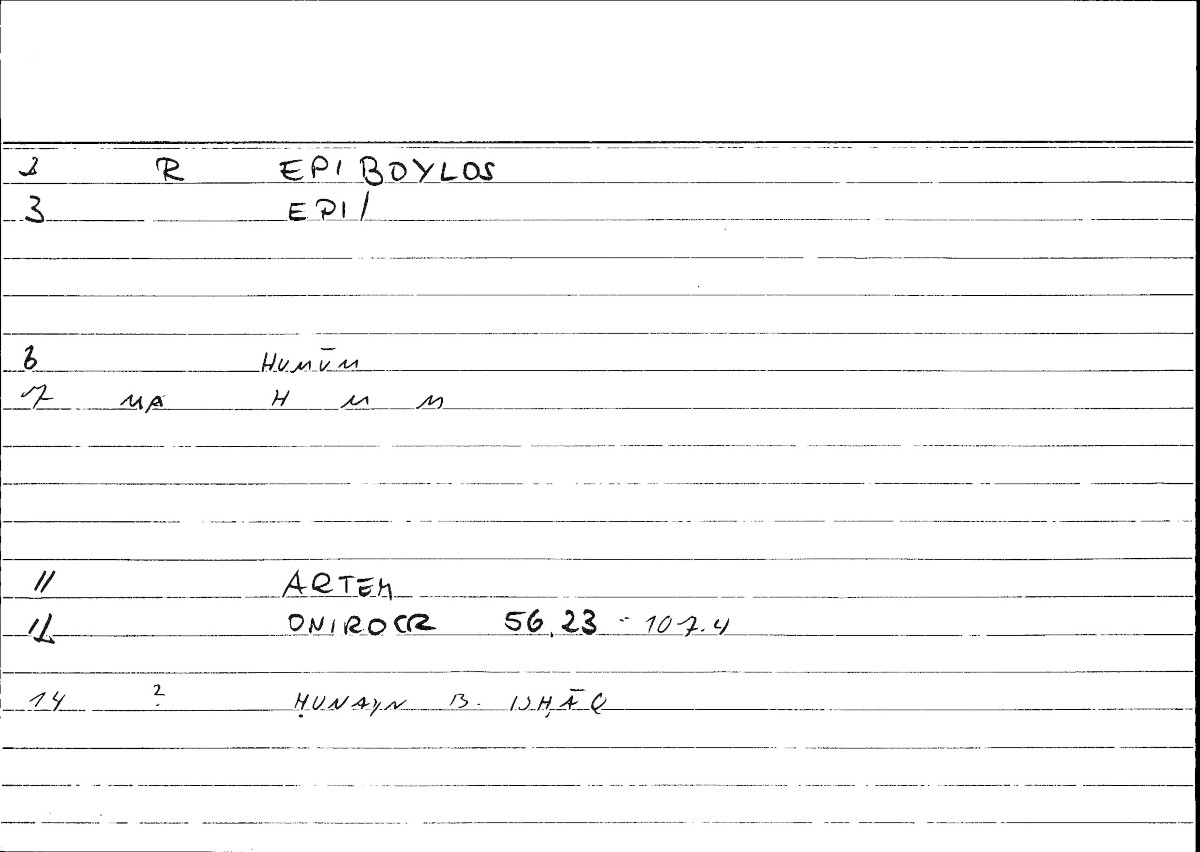 2 R EPIBOYLOS
3 EPI/
6 HUMŪM
7 MA H M M
11 ARTEM
12 ONIROCR 56,23 - 107.4
14 ? ḤUNAYN B. ISḤĀQ